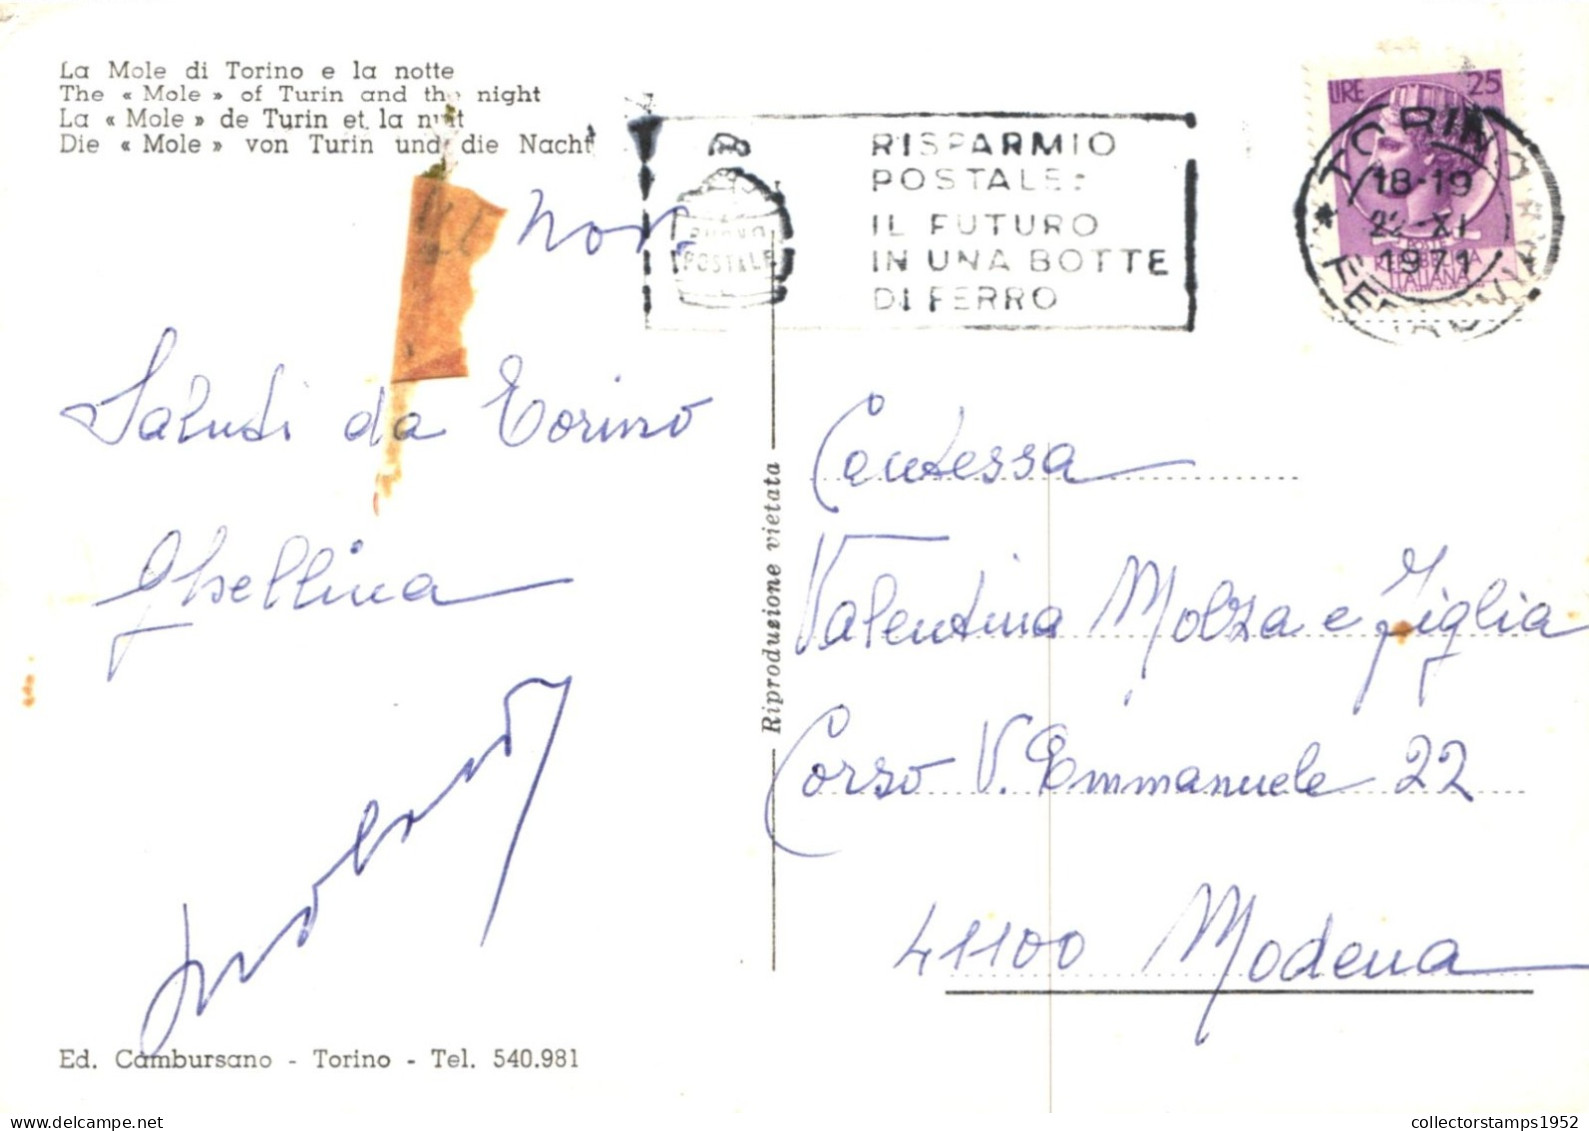 La Mole di Torino e la notte
The « Mole » of Turin and the night
La « Mole » de Turin et la nuit
Die « Mole » von Turin und die Nacht
RISPARMIO
POSTALE:
IL FUTURO
IN UNA BOTTE
DI FERRO
BUONO
POSTALE
LIRE 25
TORINO
18-19
1971
POSTE
REPUBBLICA
ITALIANA
Saluti da Torino
Ghellina
Riproduzione vietata
Contessa
Valentina Molza e figlia
Corso V. Emmanuele 22
41100 Modena
Ed. Cambursano - Torino - Tel. 540.981
collectorstamps1952